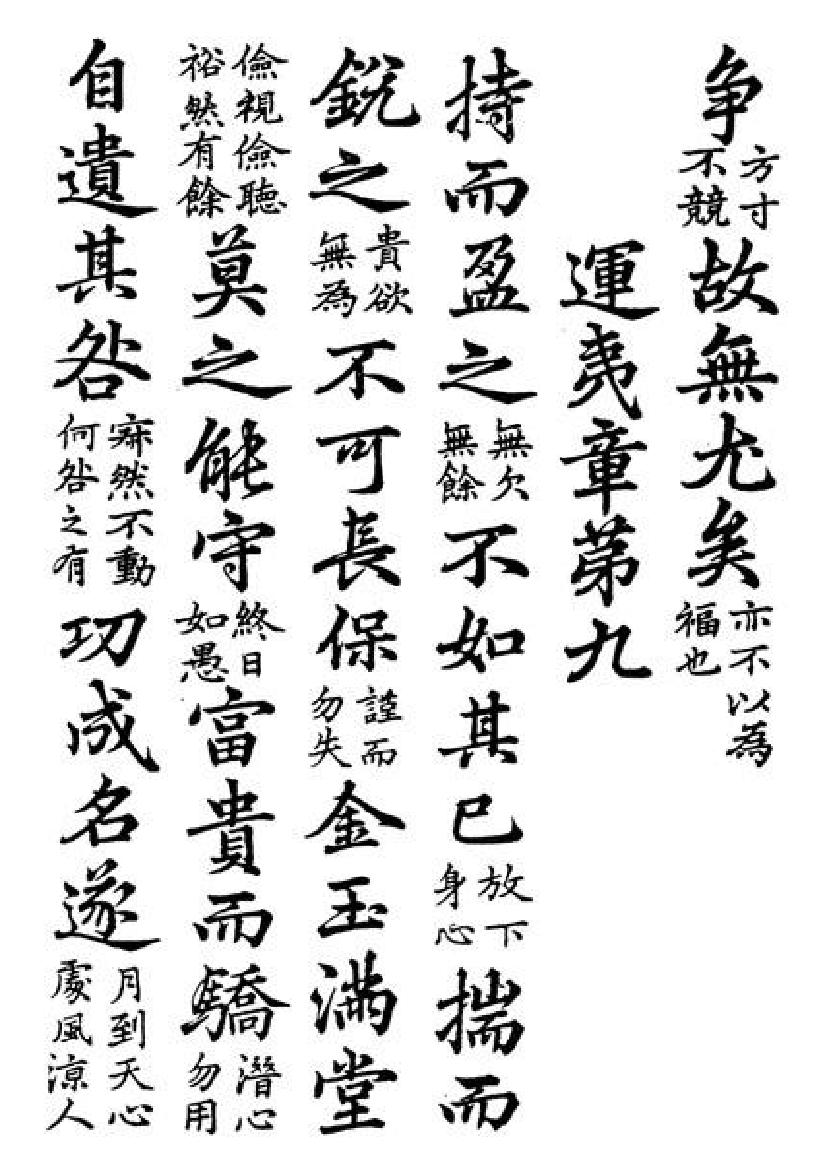 争方寸不競故無尤矣亦不以為福也
運夷章第九
持而盈之無欠無餘不如其已放下身心揣而
銳之貴欲無為不可長保謹而勿失金玉滿堂
儉視儉聽裕然有餘莫之能守終日如愚富貴而驕潛心勿用
自遺其咎寂然不動何咎之有功成名遂月到天心處風涼人